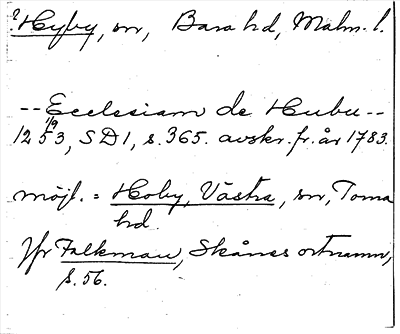 ? Hyby, sn, Bara hd, Malm. l.
-- Ecclesiam de Hubu --
1/9
1253, SD1, s. 365. avskr. fr. år 1783.
möjl. = Hoby, Västra, sn, Torna
hd
Jfr Falkman, Skånes ortnamn,
s. 56.